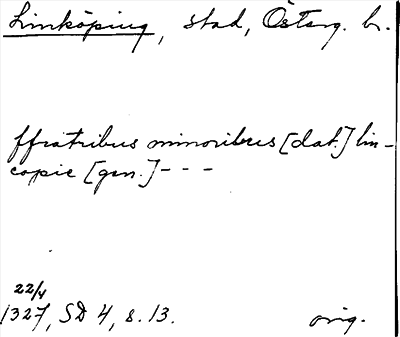 Linköping, stad, Österg. l.
ffratribus minoribus [dat.] lin-
copie [gen.] - - -
22/4
1327, SD 4, s. 13. orig.